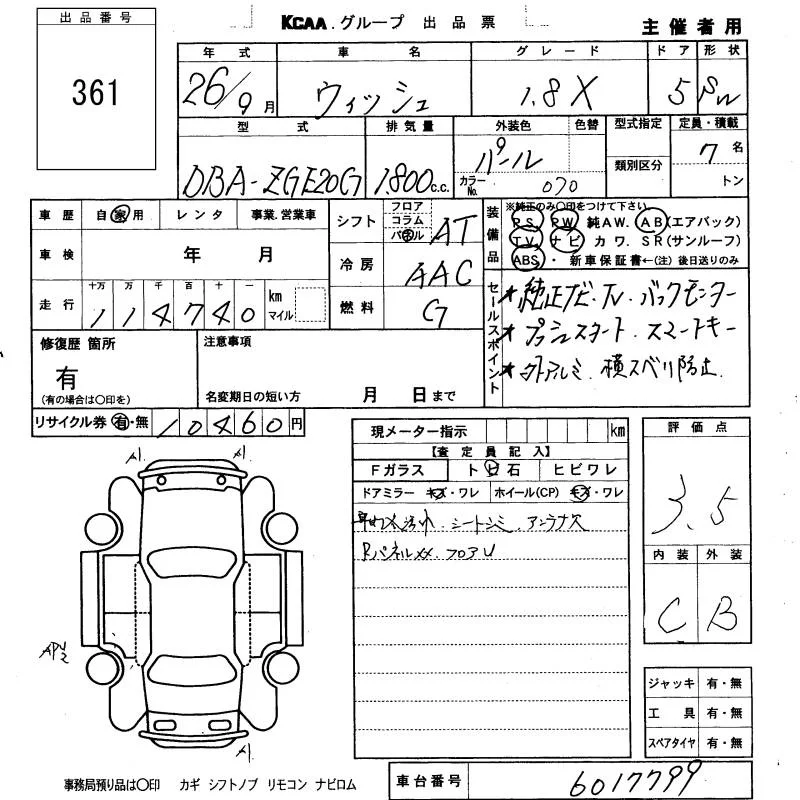 出品番号
361
KCAA.グループ 出品票
主催者用
年式 車名 グレード ドア 形状
26/9月 ウィッシュ 1.8X 5 SW
型式 排気量 外装色 色替 型式指定 定員・積載
DBA-ZGE20G 1,800c.c. パール 類別区分 7名
カラーNo. 070 トン
車歴 自家用 レンタ 事業.営業車
車検 年 月
走行 十万 万 千 百 十 一
114740 km マイル
シフト フロア コラム パネル AT
冷房 AAC
燃料 G
装備品
※純正のみ〇印をつけて下さい
PS. PW 純AW. AB(エアバック)
TV. ナビ カワ. SR(サンルーフ)
ABS. ・新車保証書←(注)後日送りのみ
セールスポイント
★純正ナビ・TV. バックモニター
★プッシュスタート. スマートキー
★外アルミ. 横スベリ防止.
修復歴 箇所
有
(有の場合は〇印を)
注意事項
名変期日の短い方 月 日まで
リサイクル券 有・無 10460円
現メーター指示 km
【査定員記入】
Fガラス ト ビ 石 ヒビワレ
ドアミラー キズ・ワレ ホイール(CP) キズ・ワレ
シートシミ. アンテナ欠
Rパネルxx. フロアU
評価点
3.5
内装 外装
C B
A1 A1
APU2
A1
ジャッキ 有・無
工具 有・無
スペアタイヤ 有・無
事務局預り品は〇印 カギ シフトノブ リモコン ナビロム
車台番号 6017799